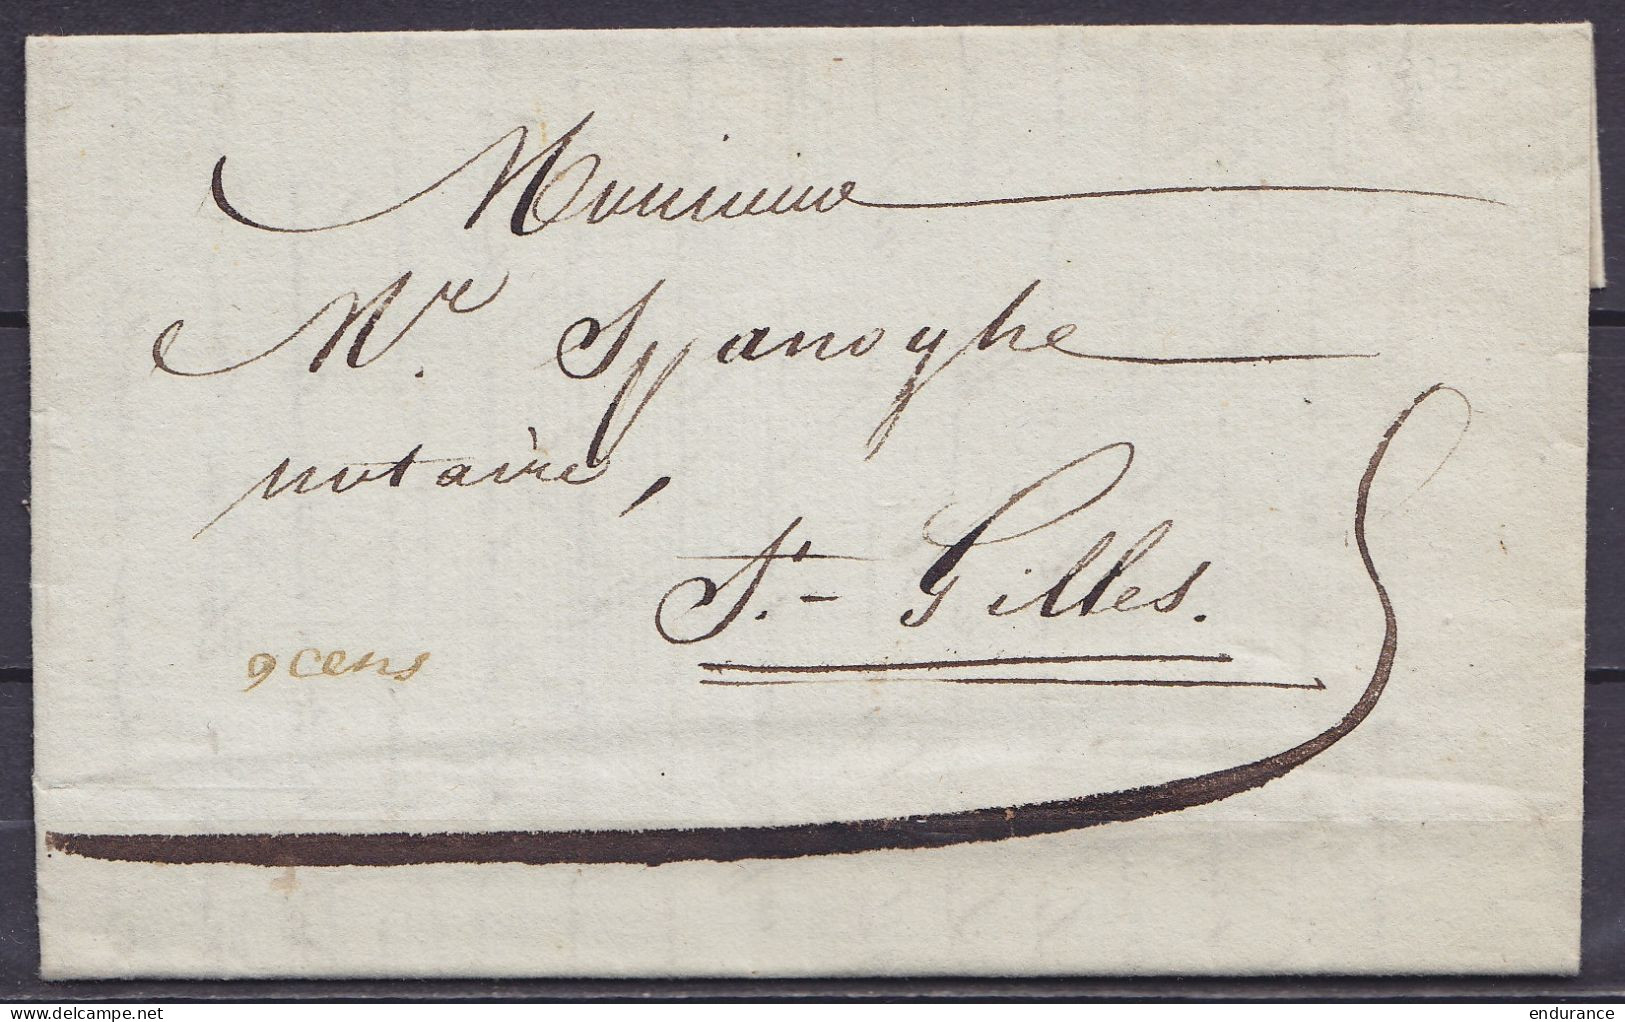 Monsieur
Mr. Spanoghe
notaire,
St. - Gilles.
9 cens
5
delcampe.net
endurance